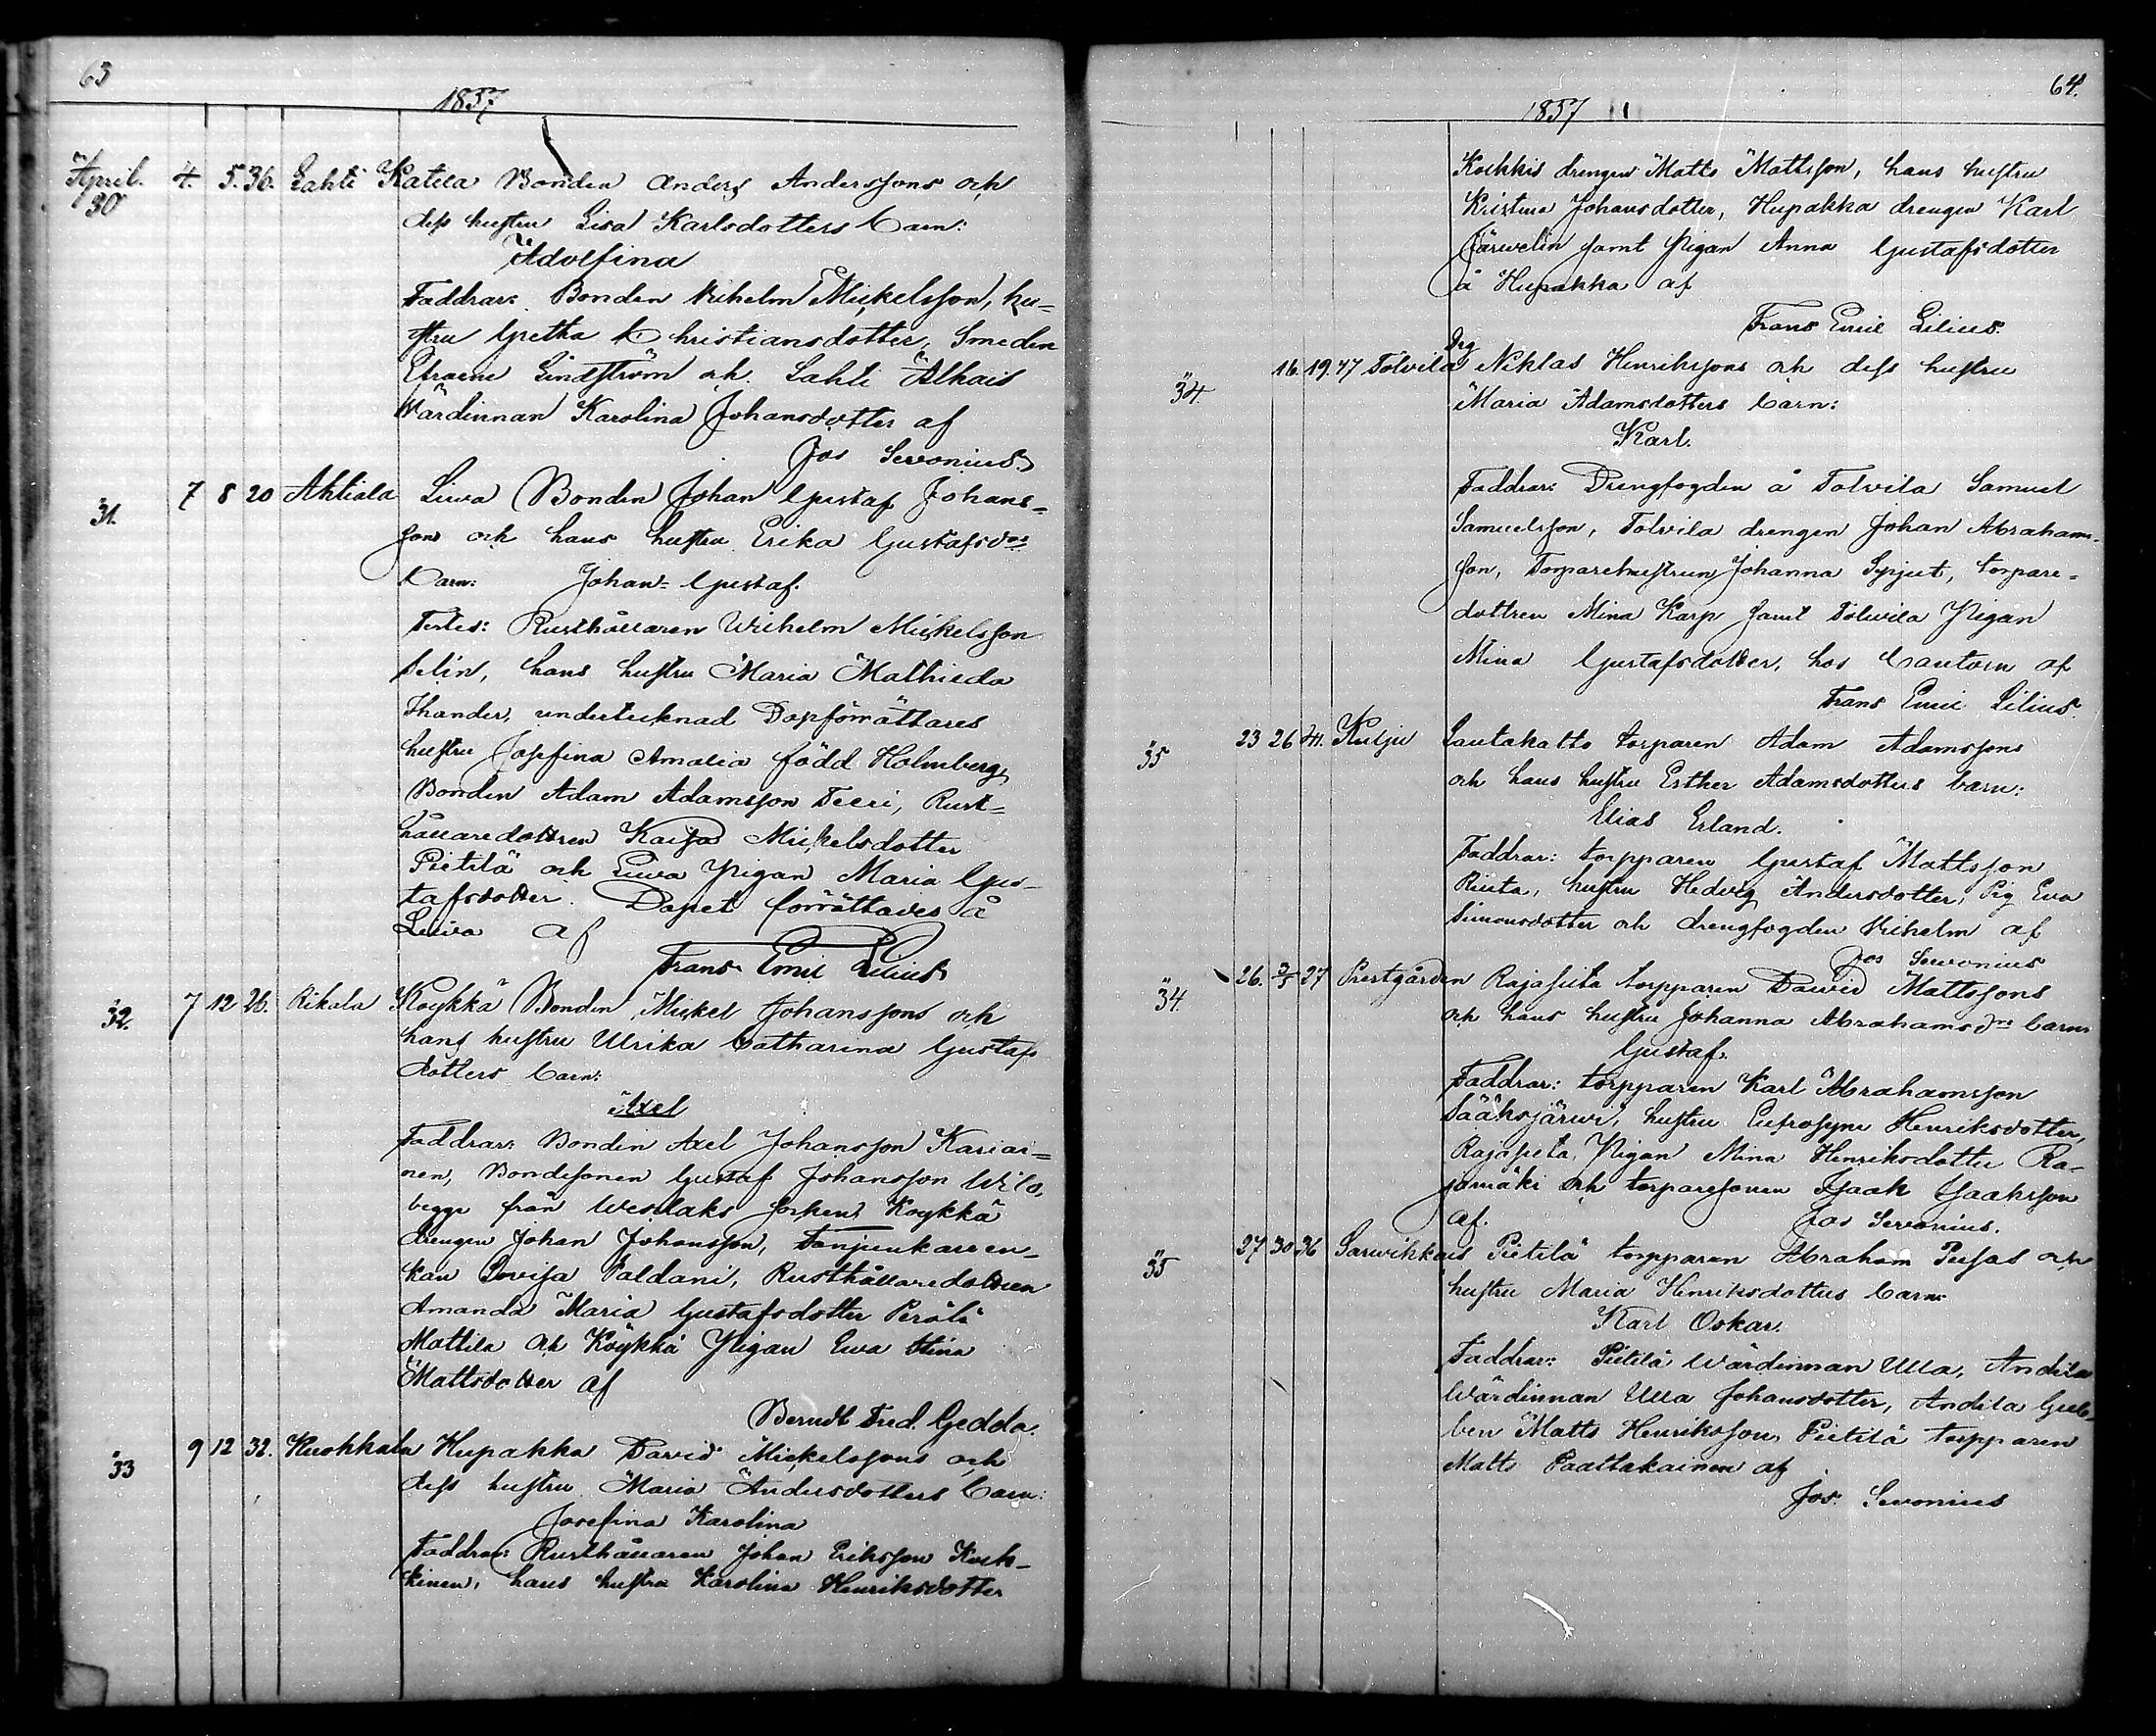 63
1857
April. 4. 5. 36. Lahti Katila Bonden Anders Anderssons och
30
dess hustru Lisa Karlsdotters barn:
Adolfina
Faddrar: Bonden Vilhelm Mickelsson, hu-
stru Gretha Christiansdotter, Smeden
Efraim Lindström och Lahti Alhais
Wärdinnan Karolina Johansdotter af
Jos Sevonius
31. 7 8 20 Ahtiala Liuva Bonden Johan Gustaf Johans-
sons och hans hustru Erika Gustafsdrs
barn: Johan Gustaf.
Testes: Rusthållaren Wilhelm Mickelsson
Selin, hans hustru Maria Mathilda
Thander, undertecknad Dopförrättares
hustru Josefina Amalia född Holmberg,
Bonden Adam Adamsson Teeri, Rust-
hållaredottren Kaisa Mickelsdotter
Pietilä och Liuva Pigan Maria Gus-
tafsdotter. Dopet förrättades å
Liuva af
Frans Emil Lilius
32. 7 12 26. Rikala Köykkä Bonden Mickel Johanssons och
hans hustru Ulrika Catharina Gustafs
dotters barn:
Axel
Faddrar: Bonden Axel Johansson Kariai-
nen, Bondesonen Gustaf Johansson Wilo,
begge från Weslaks socken, Köykkä
drengen Johan Johansson,
kan Lovisa Paldani, Rusthållaredottren
Amanda Maria Gustafsdotter Perälä
Mattila och Köykkä Pigan Ewa Stina
Mattsdotter af
Berndt Fred. Gedda.
33 9 12 32. Kuokkala Hupakka David Mickelssons och
dess hustru Maria Andersdotters barn:
Josefina Karolina
Faddrar: Rusthållaren Johan Eriksson Kock-
kinen, hans hustru Karolina Henriksdotter
64.
1857
Kockkis drengen Matts Mattsson, hans hustru
Kristina Johansdotter, Hupakka drengen Karl
Järvelin samt Pigan Anna Gustafsdotter
å Hupakka af
Frans Emil Lilius.
34. 16. 19. 47 Tolvila Drg Niklas Henrikssons och dess hustru
Maria Adamsdotters barn:
Karl.
Faddrar: Drengfogden å Tolvila Samuel
Samuelsson, Tolvila drengen Johan Abrahams-
son, Torparehustrun Johanna Spjut, torpare-
dottren Mina Karp samt Tolvila Pigan
Mina Gustafsdotter, hos Cantorn af
Frans Emil Lilius.
35 23 26 41. Kulju Lautakatto torparen Adam Adamssons
och hans hustru Esther Adamsdotters barn:
Elias Erland.
Faddrar: torpparen Gustaf Mattsson
Rinta, hustru Hedvig Andersdotter, Pig Eva
Simonsdotter och drengfogden Vilhelm af
Jos Sevonius
34. 26. 3/5 27 Prestgården Rajasilta torpparen David Mattssons
och hans hustru Johanna Abrahamsdrs barn
Gustaf.
Faddrar: torpparen Karl Abrahamsson
Sääksjärwi, hustru Eufrosyne Henriksdotter,
Rajasilta Pigan Mina Henriksdotter Ra-
jamäki och torparesonen Isaak Isaaksson
af. Jos Sevonius.
35 27 30 36 Sarvikkais Pietilä torpparen Abraham Pusas och
hustru Maria Henriksdotters barn:
Karl Oskar.
Faddrar: Pietilä Wärdinnan Ulla, Andila
Wärdinnan Ulla Johansdotter, Andila Gub-
ben Matts Henriksson, Pietilä torpparen
Matts Paattakainen af
Jos. Sevonius